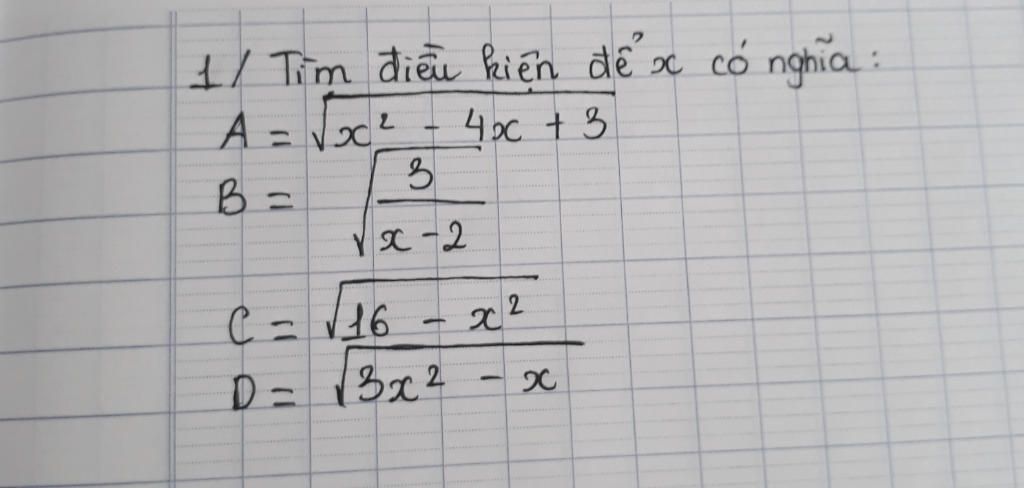 1/ Tìm điều kiện để x có nghĩa:
A = √(x² - 4x + 3)
B = √(3/(x - 2))
C = √(16 - x²)
D = √(3x² - x)